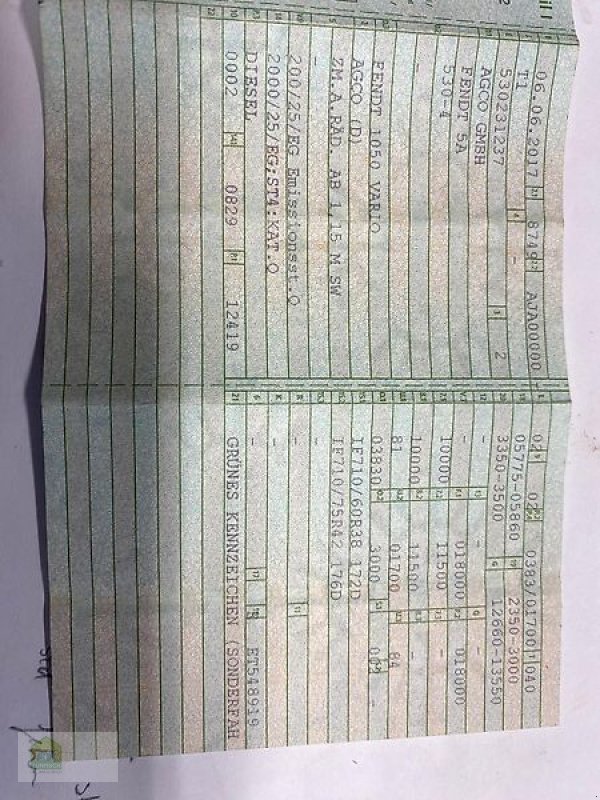 06.06.2017 8749 AJA00000
T1 -
530231237 2
AGCO GMBH
FENDT 5A
530-4
-
FENDT 1050 VARIO
AGCO (D)
ZM.A.RÄD. AB 1,15 M SW
-
200/25/EG Emissionsst.Q
2000/25/EG;ST4:KAT.Q
DIESEL
0002 0829 12419
02 02 0383/01700 1040
05775-05860 2350-3000
3350-3500 12660-13550
- - -
018000 018000
10000 11500 -
10000 11500 -
81 01700 84
03830 3000 002 -
IF710/60R38 172D
IF710/75R42 176D
-
- -
- ET548919
GRÜNES KENNZEICHEN (SONDERFAH